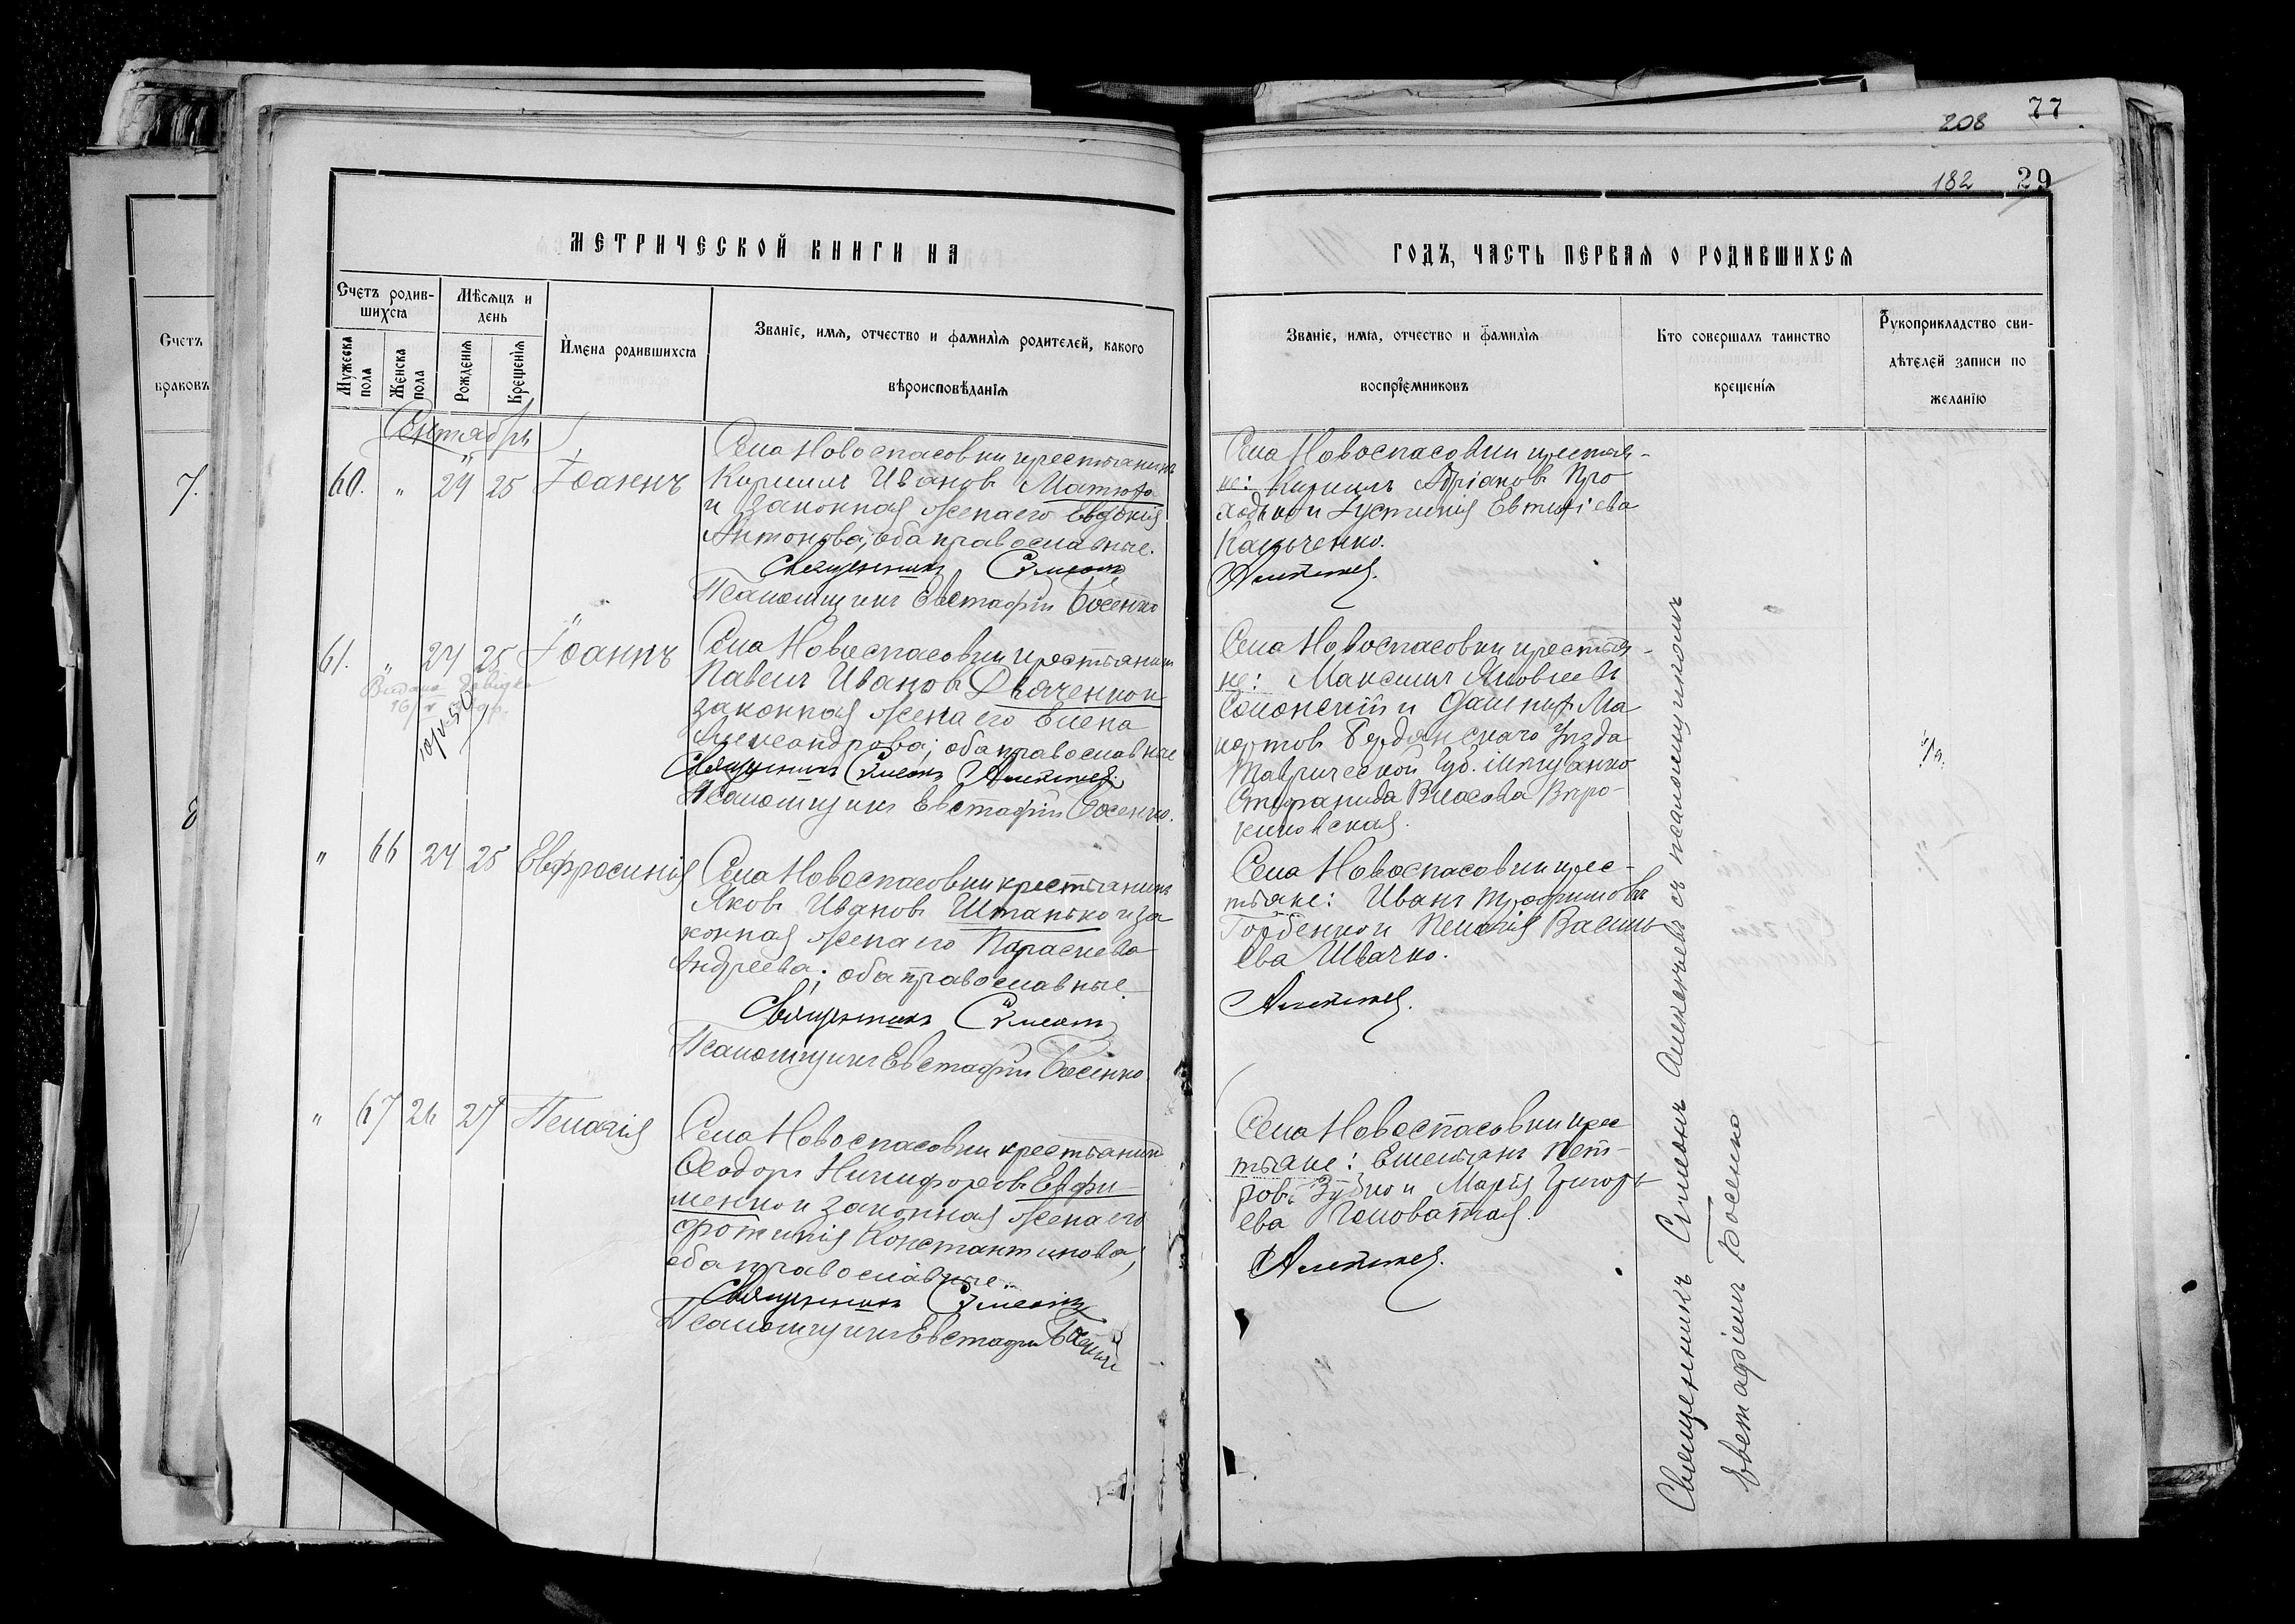 77
208
182 29
МЕТРИЧЕСКОЙ КНИГИ НА
ГОДЪ, ЧАСТЬ ПЕРВАЯ О РОДИВШИХСЯ
Счетъ
браковъ
7.
8
Счетъ родив-
шихся
Мужеска
пола
Женска
пола
Мѣсяцъ и
день
Рожденія
Крещенія
Имена родившихся
Званіе, имя, отчество и фамилія родителей, какого
вѣроисповѣданія
Званіе, имя, отчество и фамилія
воспріемниковъ
Кто совершалъ таинство
крещенія
Рукоприкладство сви-
дѣтелей записи по
желанію
Сентябрь
60. " 24 25 Іоаннъ
Села Новоспасовки крестьянинъ
Кириллъ Ивановъ
и законная жена его Евдокія
Антонова; оба православные.
Священникъ Сѵмеонъ
Псаломщикъ Евстафій Босенко
Села Новоспасовки крестья-
не: Кириллъ Адріановъ Про
ходько и Іустинія Евтихіева
Алексѣевъ
61. " 24 25 Іоаннъ
10/V-52
Села Новоспасовки крестьянинъ
Павелъ Ивановъ Дьяченко и
законная жена его Елена
Александрова; оба православные
Священникъ Сѵмеонъ Алексѣевъ
Псаломщикъ Евстафій Босенко.
Села Новоспасовки крестья-
не: Максимъ Яковлевъ
и
Бердянскаго уѣзда
Таврической губ.
Стефанида Власова
" 66 24 25 Евфросинія
Села Новоспасовки крестьянинъ
Яковъ Ивановъ Штанько и за
конная жена его Параскева
Андреева; оба православные.
Священникъ Сѵмеонъ
Псаломщикъ Евстафій Босенко.
Села Новоспасовки крес-
тьяне: Иванъ Трофимовъ
Горбенко и Пелагія Василь
ева Швачко.
Алексѣевъ
" 67 26 27 Пелагія
Села Новоспасовки крестьянинъ
Ѳеодоръ Никифоровъ Евфи-
менко и законная жена его
Фотинія Константинова;
оба православные.
Священникъ Сѵмеонъ
Псаломщикъ Евстафій Босенко
Села Новоспасовки крес
тьяне: Емельянъ Пет-
ровъ Зубко и Марія Григорь
ева Головатая.
Алексѣевъ
Священникъ Сѵмеонъ Алексѣевъ съ псаломщикомъ
Евстафіемъ Босенко